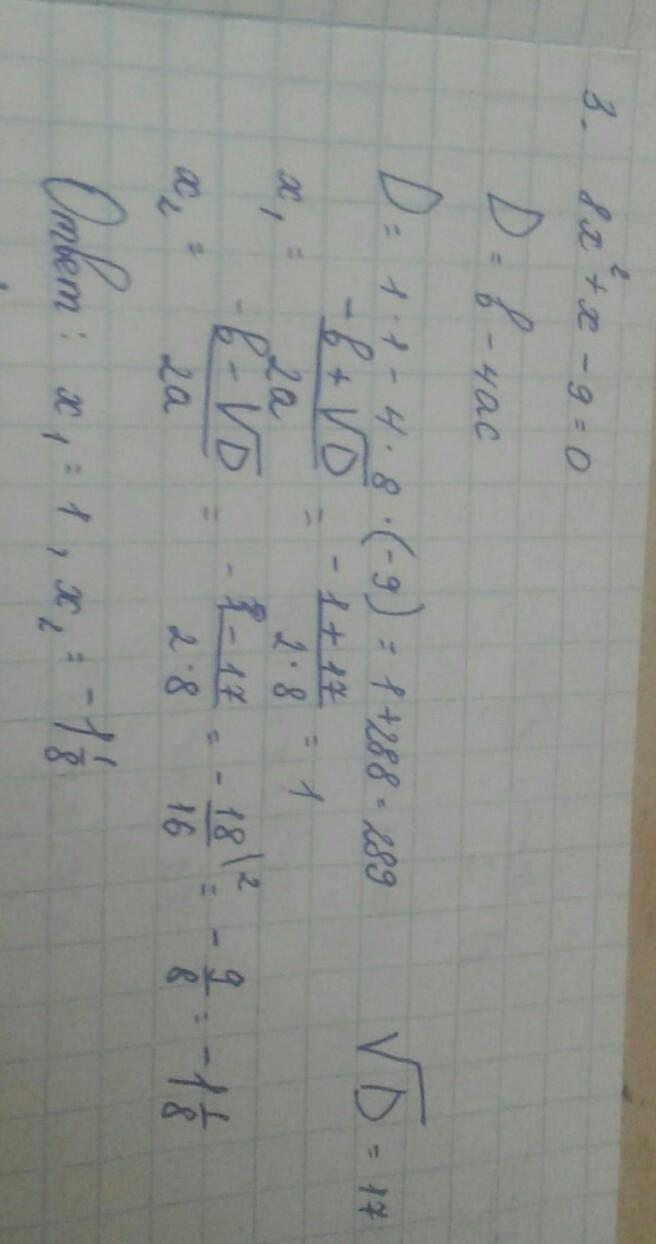 3. 8x² + x - 9 = 0
D = b - 4ac
D = 1·1 - 4·8·(-9) = 1 + 288 = 289 √D = 17
x₁ = (-b + √D)/2a = (-1 + 17)/(2·8) = 1
x₂ = (-b - √D)/2a = (-1 - 17)/(2·8) = -18/16 \2 = -9/8 = -1 1/8
Ответ: x₁ = 1, x₂ = -1 1/8